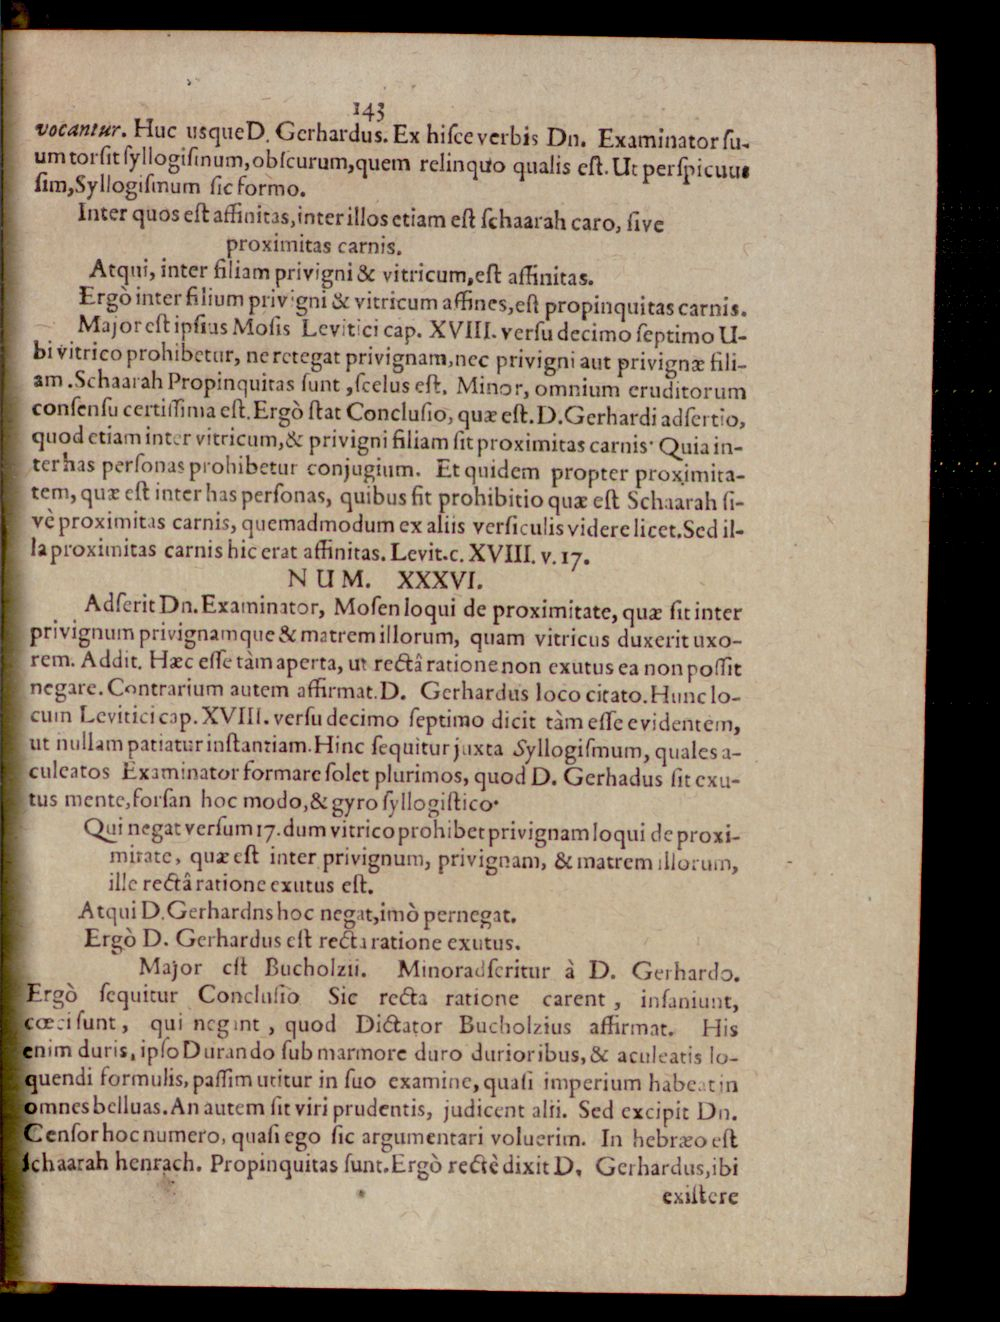 143
vocantur. Huc usque D. Gerhardus. Ex hisce verbis Dn. Examinator su-
um torsit syllogisinum, obscurum, quem relinquo qualis est. Ut perspicuus
sim, Syllogismum sic formo.
Inter quos est affinitas, inter illos etiam est schaarah caro, sive
proximitas carnis.
Atqui, inter filiam privigni & vitricum, est affinitas.
Ergò inter filium privigni & vitricum affines, est propinquitas carnis.
Major est ipsius Mosis Levitici cap. XVIII. versu decimo septimo U-
bi vitrico prohibetur, ne retegat privignam, nec privigni aut privignæ fili-
am. Schaarah Propinquitas sunt, scelus est. Minor, omnium eruditorum
consensu certissima est. Ergò stat Conclusio, quæ est. D. Gerhardi adsertio,
quod etiam inter vitricum, & privigni filiam sit proximitas carnis. Quia in-
ter has personas prohibetur conjugium. Et quidem propter proximita-
tem, quæ est inter has personas, quibus fit prohibitio quæ est Schaarah si-
vè proximitas carnis, quemadmodum ex aliis versiculis videre licet. Sed il-
la proximitas carnis hic erat affinitas. Levit. c. XVIII. v. 17.
NUM. XXXVI.
Adserit Dn. Examinator, Mosen loqui de proximitate, quæ sit inter
privignum privignamque & matrem illorum, quam vitricus duxerit uxo-
rem. Addit. Hæc esse tàm aperta, ut rectâ ratione non exutus ea non possit
negare. Contrarium autem affirmat. D. Gerhardus loco citato. Hunc lo-
cum Levitici cap. XVIII. versu decimo septimo dicit tàm esse evidentem,
ut nullam patiatur instantiam. Hinc sequitur juxta Syllogismum, quales a-
culeatos Examinator formare solet plurimos, quod D. Gerhadus sit exu-
tus mente, forsan hoc modo, & gyro syllogistico.
Qui negat versum 17. dum vitrico prohibet privignam loqui de proxi-
mitate, quæ est inter privignum, privignam, & matrem illorum,
ille rectâ ratione exutus est.
Atqui D. Gerhardns hoc negat, imò pernegat.
Ergò D. Gerhardus est recta ratione exutus.
Major est Bucholzii. Minor adseritur à D. Gerhardo.
Ergò sequitur Conclusio Sic recta ratione carent, insaniunt,
cœci sunt, qui negant, quod Dictator Bucholzius affirmat. His
enim duris, ipso Durando sub marmore duro durioribus, & aculeatis lo-
quendi formulis, passim utitur in suo examine, quasi imperium habeat in
omnes belluas. An autem sit viri prudentis, judicent alii. Sed excipit Dn.
Censor hoc numero, quasi ego sic argumentari voluerim. In hebræo est
schaarah henrach. Propinquitas sunt. Ergò rectè dixit D. Gerhardus, ibi
existere